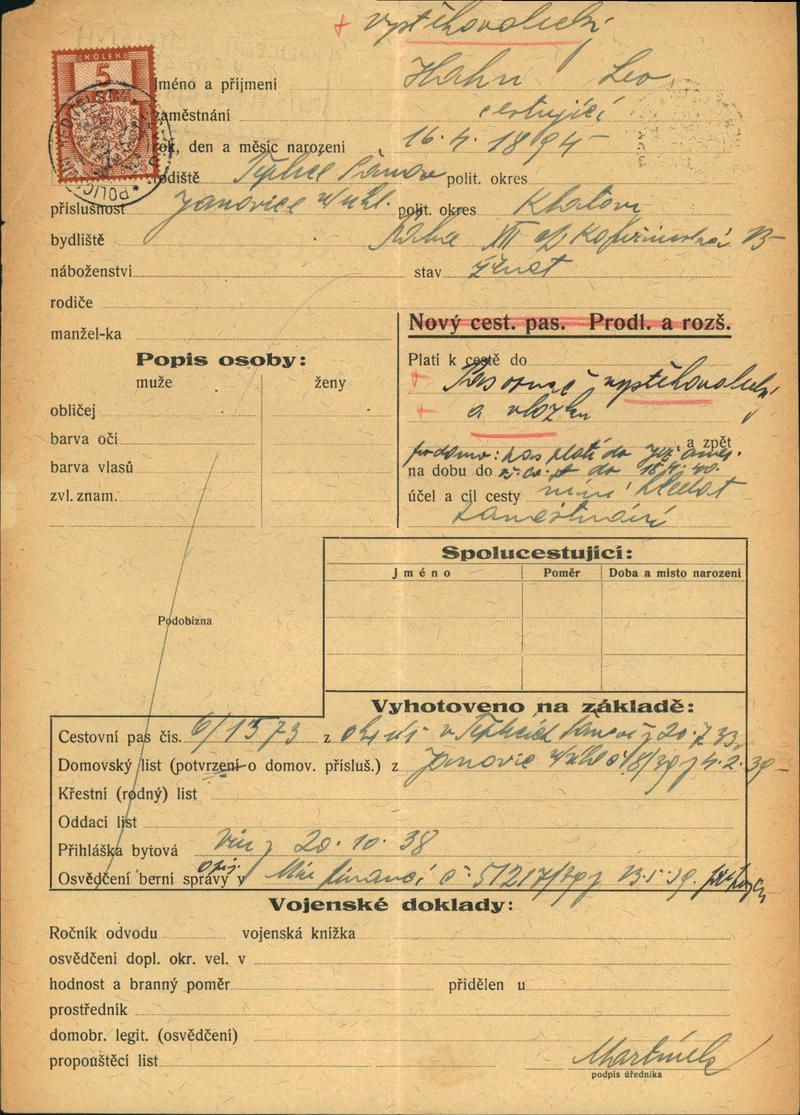 + vystěhovalecký
KOLEK
5
Jméno a příjmení Hahn Leo
zaměstnání cestující
rok, den a měsíc narození 16.4.1894
rodiště Teplice Šanov polit. okres
příslušnost Janovice polit. okres Klatovy
bydliště Praha XII
náboženství stav ženat
rodiče
manžel-ka
Nový cest. pas. Prodl. a rozš.
Popis osoby:
muže ženy
obličej
barva očí
barva vlasů
zvl. znam.
Platí k cestě do
+ Pas označ vystěhovalecký
+ a vložku
a zpět
pas platí do
na dobu do do 18.4.40.
účel a cíl cesty míní hledat
zaměstnání
Spolucestující:
Jméno Poměr Doba a místo narození
Podobizna
Vyhotoveno na základě:
Cestovní pas čís. 6/1573 z v Teplicích Šanově z 20.7.33
Domovský list (potvrzení o domov. přísluš.) z Janovic 4.2.39
Křestní (rodný) list
Oddací list
Přihláška bytová z 20.10.38
Osvědčení berní správy v Min financí č. 51217/39 z
Vojenské doklady:
Ročník odvodu vojenská knížka
osvědčení dopl. okr. vel. v
hodnost a branný poměr přidělen u
prostředník
domobr. legit. (osvědčení)
propouštěcí list
podpis úředníka